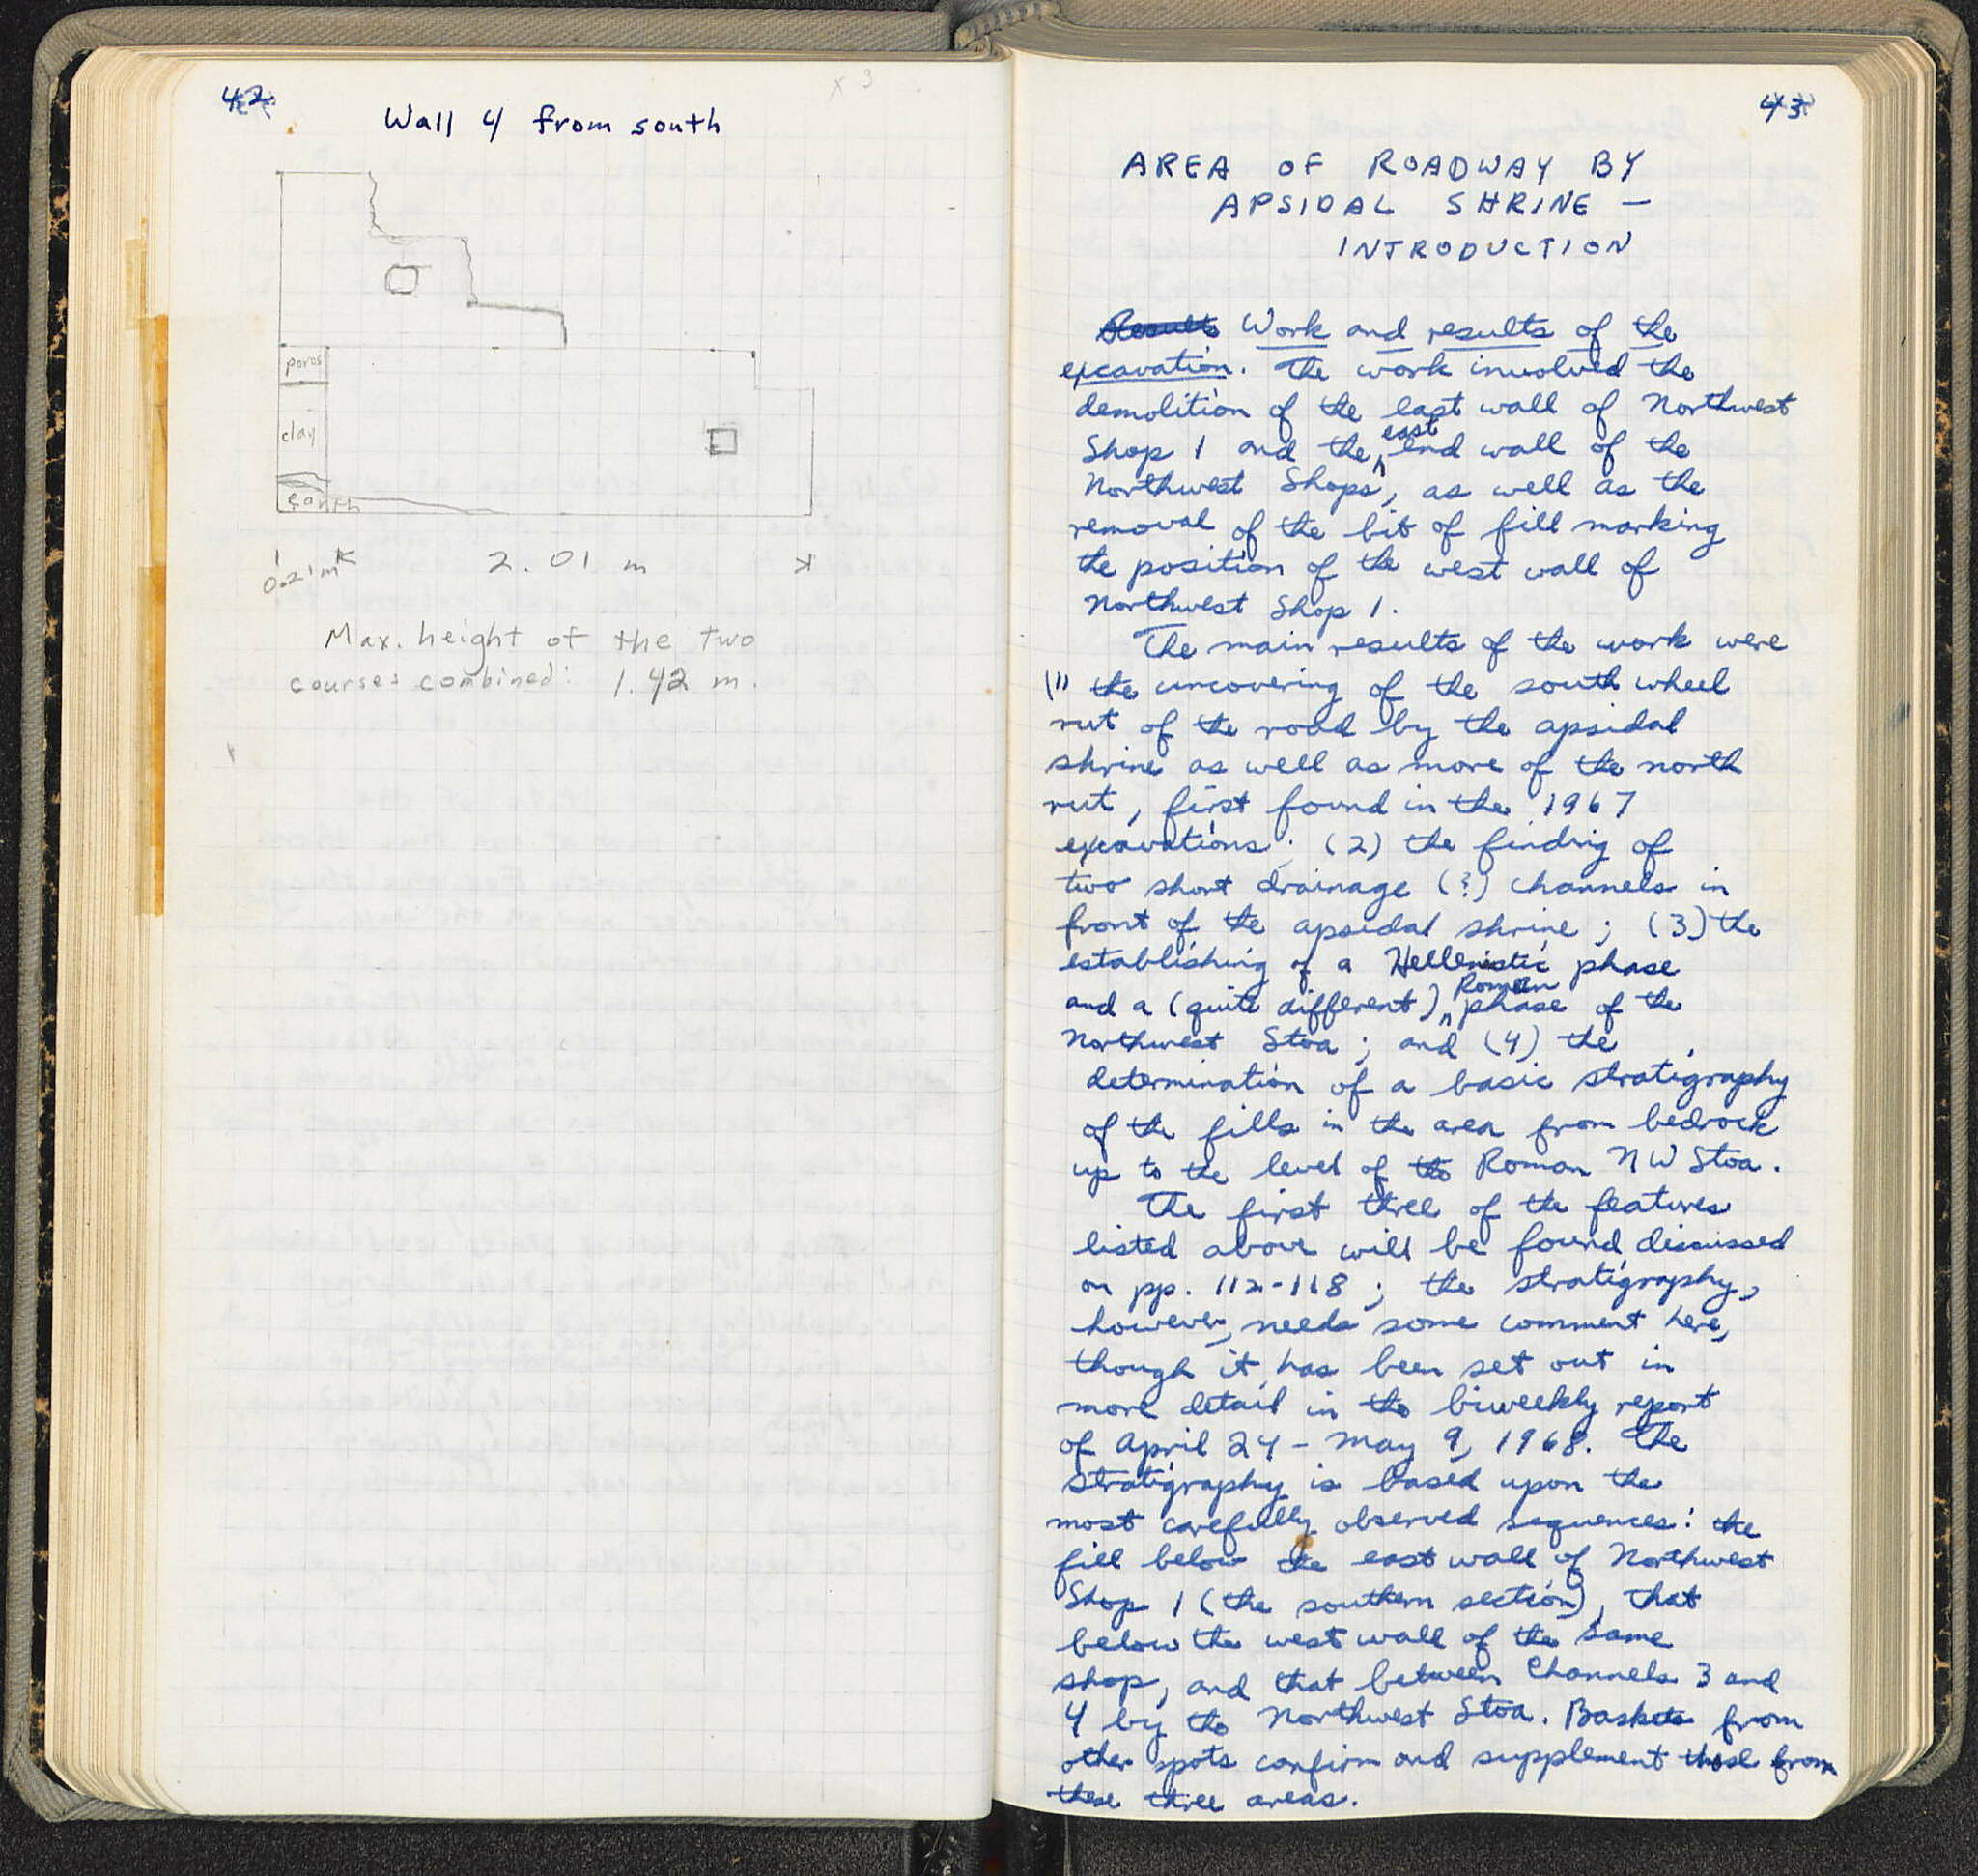 42
Wall 4 from south
poros
clay
earth
0.21 m 2.01 m
Max. height of the two
courses combined: 1.42 m.
43
AREA OF ROADWAY BY
APSIDAL SHRINE —
INTRODUCTION
Results Work and results of the
excavation. The work involved the
demolition of the east wall of Northwest
Shop 1 and the east end wall of the
Northwest Shops, as well as the
removal of the bit of fill marking
the position of the west wall of
Northwest Shop 1.
The main results of the work were
(1) the uncovering of the south wheel
rut of the road by the apsidal
shrine as well as more of the north
rut, first found in the 1967
excavations; (2) the finding of
two short drainage (?) channels in
front of the apsidal shrine; (3) the
establishing of a Hellenistic phase
and a (quite different) Roman phase of the
Northwest Stoa; and (4) the
determination of a basic stratigraphy
of the fills in the area from bedrock
up to the level of the Roman NW Stoa.
The first three of the features
listed above will be found discussed
on pp. 112-118; the stratigraphy,
however, needs some comment here,
though it has been set out in
more detail in the biweekly report
of April 24 - May 9, 1968. The
stratigraphy is based upon the
most carefully observed sequences: the
fill below the east wall of Northwest
Shop 1 (the southern section), that
below the west wall of the same
shop, and that between Channels 3 and
4 by the Northwest Stoa. Baskets from
other spots confirm and supplement those from
these three areas.